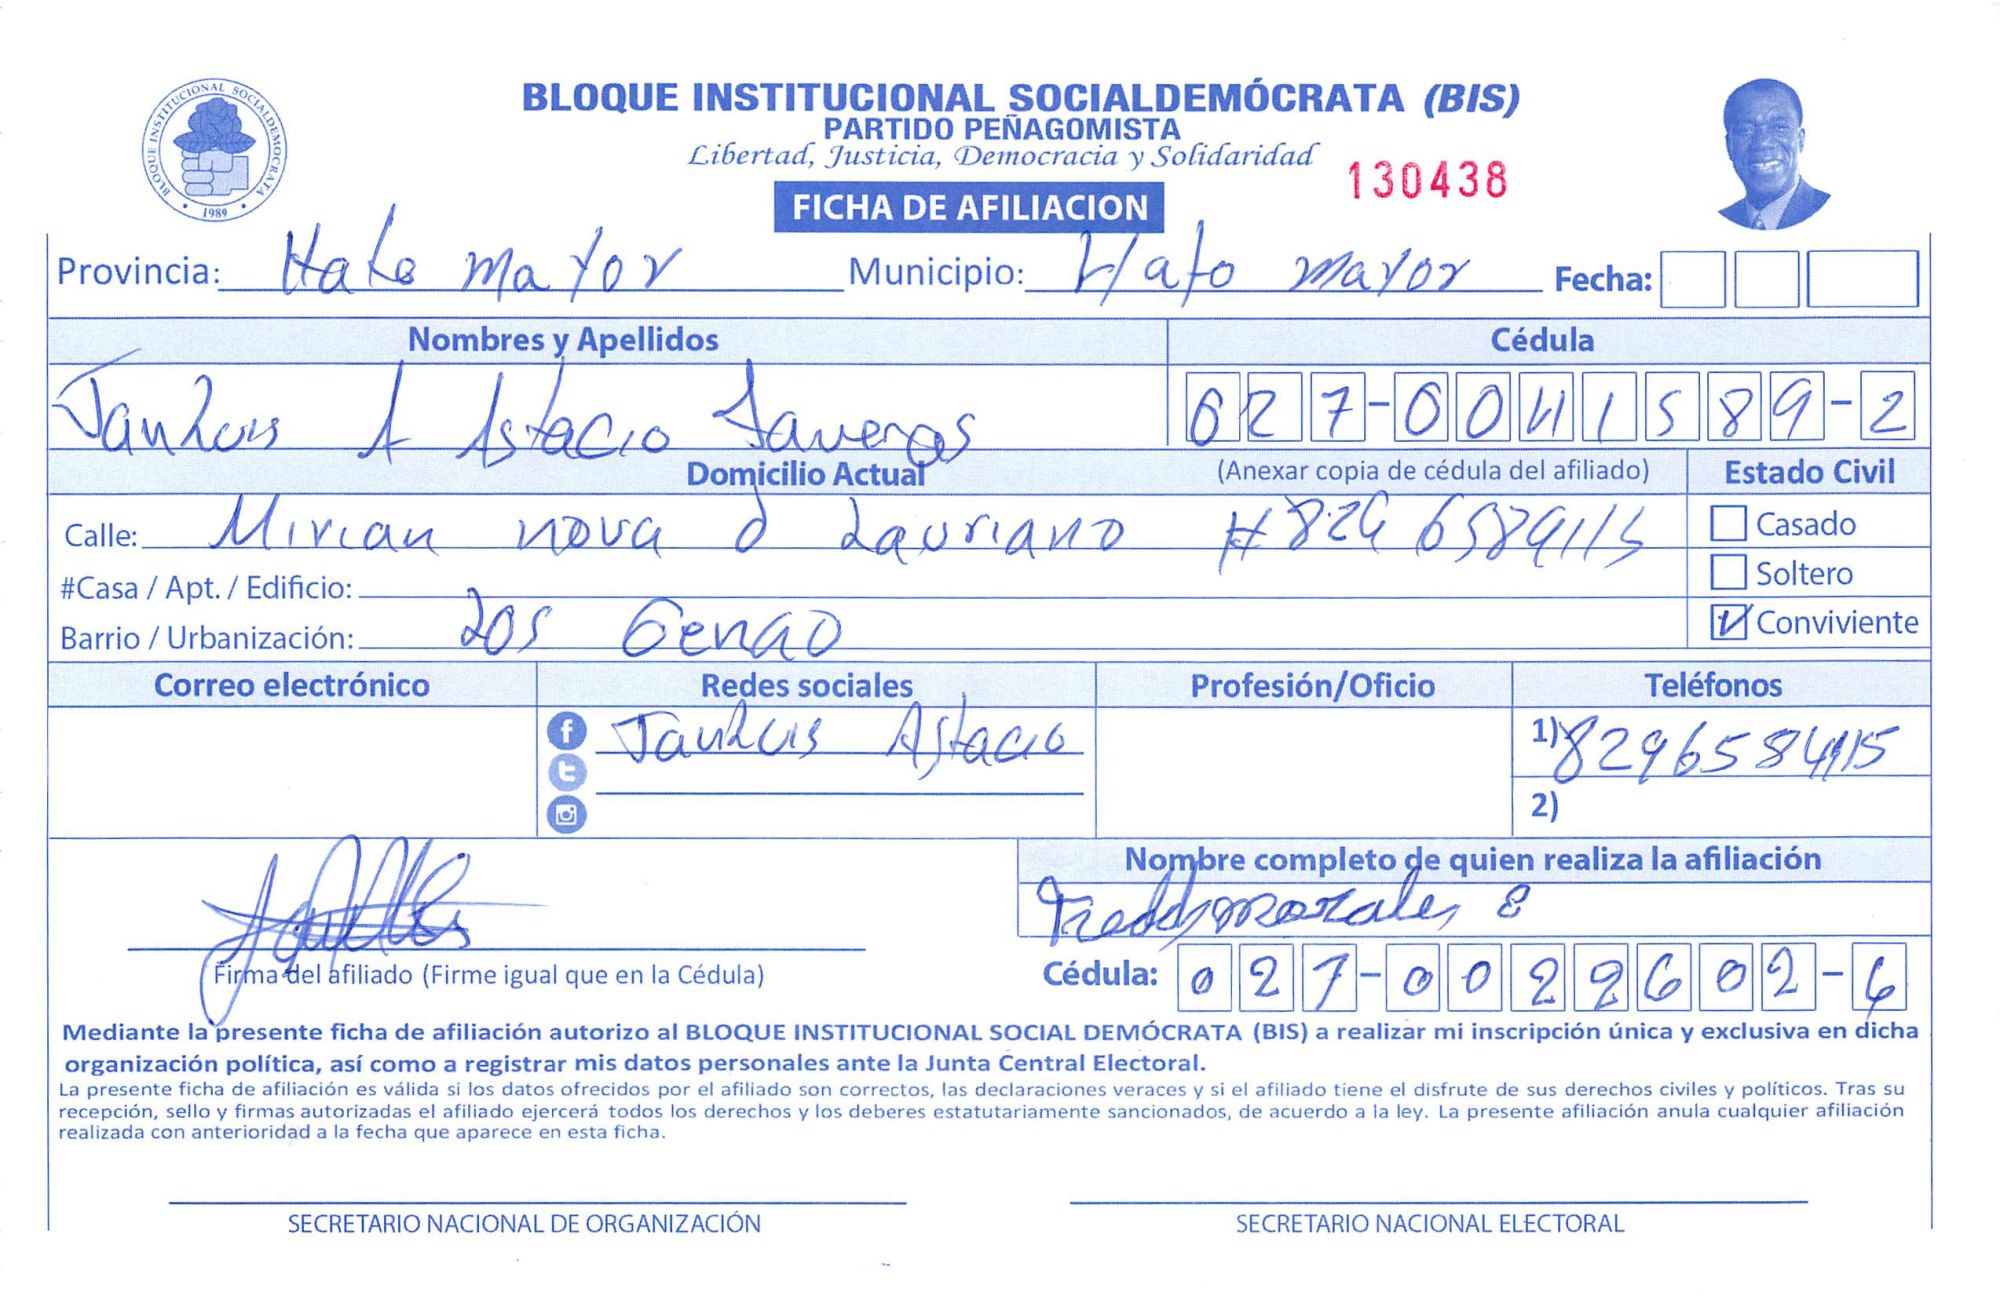 BLOQUE INSTITUCIONAL SOCIALDEMÓCRATA (BIS)
PARTIDO PEÑAGOMISTA
Libertad, Justicia, Democracia y Solidaridad
130438
BLOQUE INSTITUCIONAL SOCIALDEMOCRATA
1989
FICHA DE AFILIACION
Provincia: Hato mayor Municipio: Hato mayor Fecha:
Nombres y Apellidos Cédula
JanLuis A Astacio Taveras 027-0041589-2
Domicilio Actual (Anexar copia de cédula del afiliado) Estado Civil
Calle: Mirian nova d Lauriano # Casado
#Casa / Apt. / Edificio: Soltero
Barrio / Urbanización: Los Genao Conviviente
Correo electrónico Redes sociales Profesión/Oficio Teléfonos
JanLuis Astacio 1)
2)
Nombre completo de quien realiza la afiliación
Freddy morales
Firma del afiliado (Firme igual que en la Cédula) Cédula: 027-0022602-6
Mediante la presente ficha de afiliación autorizo al BLOQUE INSTITUCIONAL SOCIAL DEMÓCRATA (BIS) a realizar mi inscripción única y exclusiva en dicha
organización política, así como a registrar mis datos personales ante la Junta Central Electoral.
La presente ficha de afiliación es válida si los datos ofrecidos por el afiliado son correctos, las declaraciones veraces y si el afiliado tiene el disfrute de sus derechos civiles y políticos. Tras su
recepción, sello y firmas autorizadas el afiliado ejercerá todos los derechos y los deberes estatutariamente sancionados, de acuerdo a la ley. La presente afiliación anula cualquier afiliación
realizada con anterioridad a la fecha que aparece en esta ficha.
SECRETARIO NACIONAL DE ORGANIZACIÓN SECRETARIO NACIONAL ELECTORAL